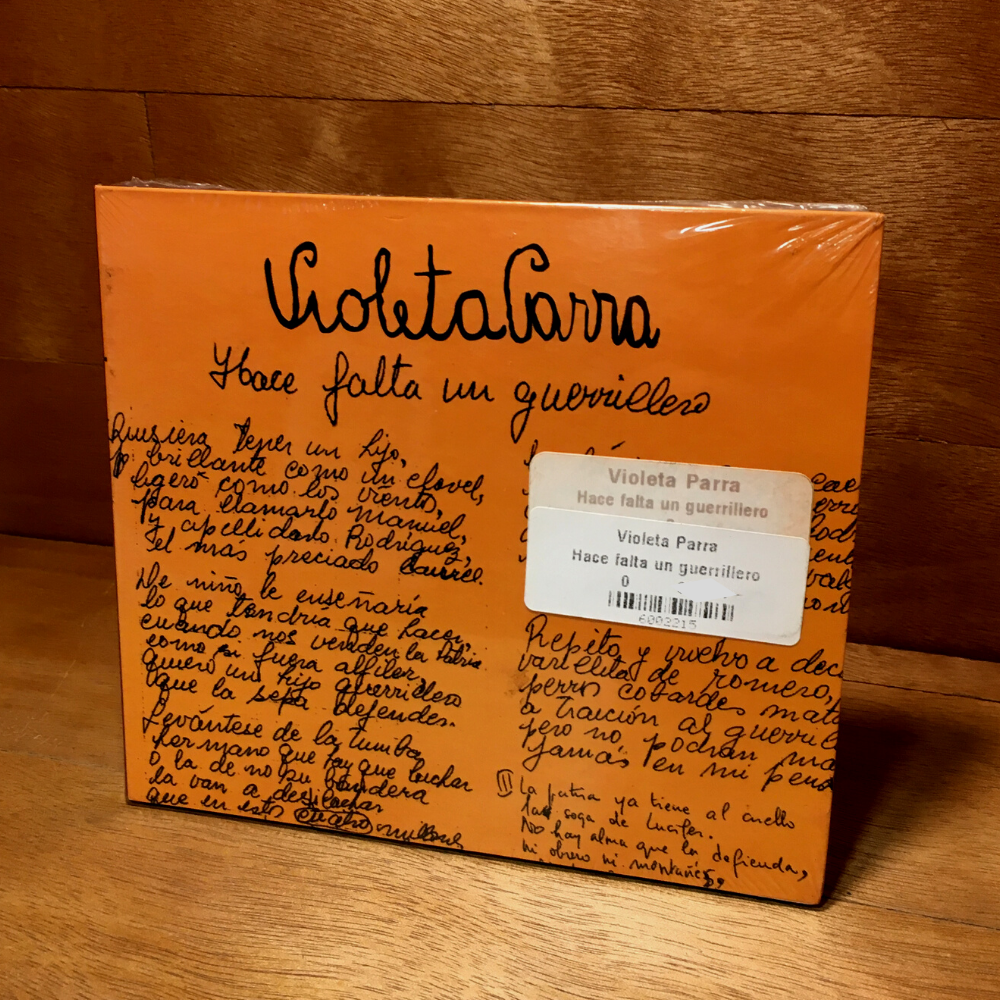 Violeta Parra
Hace falta un guerrillero
Quisiera tener un hijo,
brillante como un clavel,
ligero como los vientos,
para llamarlo Manuel,
y apellidarlo Rodríguez,
el mas preciado laurel.
De niño le enseñaría
lo que tendría que hacer,
cuando nos venden la Patria
como si fuera alfiler,
quiero un hijo guerrillero
que la sepa defender.
Levántese de la tumba,
hermano que hay que luchar
o la de no su bandera
la van a desilachar
que en estos cuatro millones
Violeta Parra
Hace falta un guerrillero
Violeta Parra
Hace falta un guerrillero
0
6002215
Repito y vuelvo a deci
varillita de romero,
perros cobardes mata
a traición al guerril
pero no podrán ma
jamás en mi pens
La patria ya tiene al cuello
la soga de Lucifer.
No hay alma que la defienda,
ni obrero ni montañés,